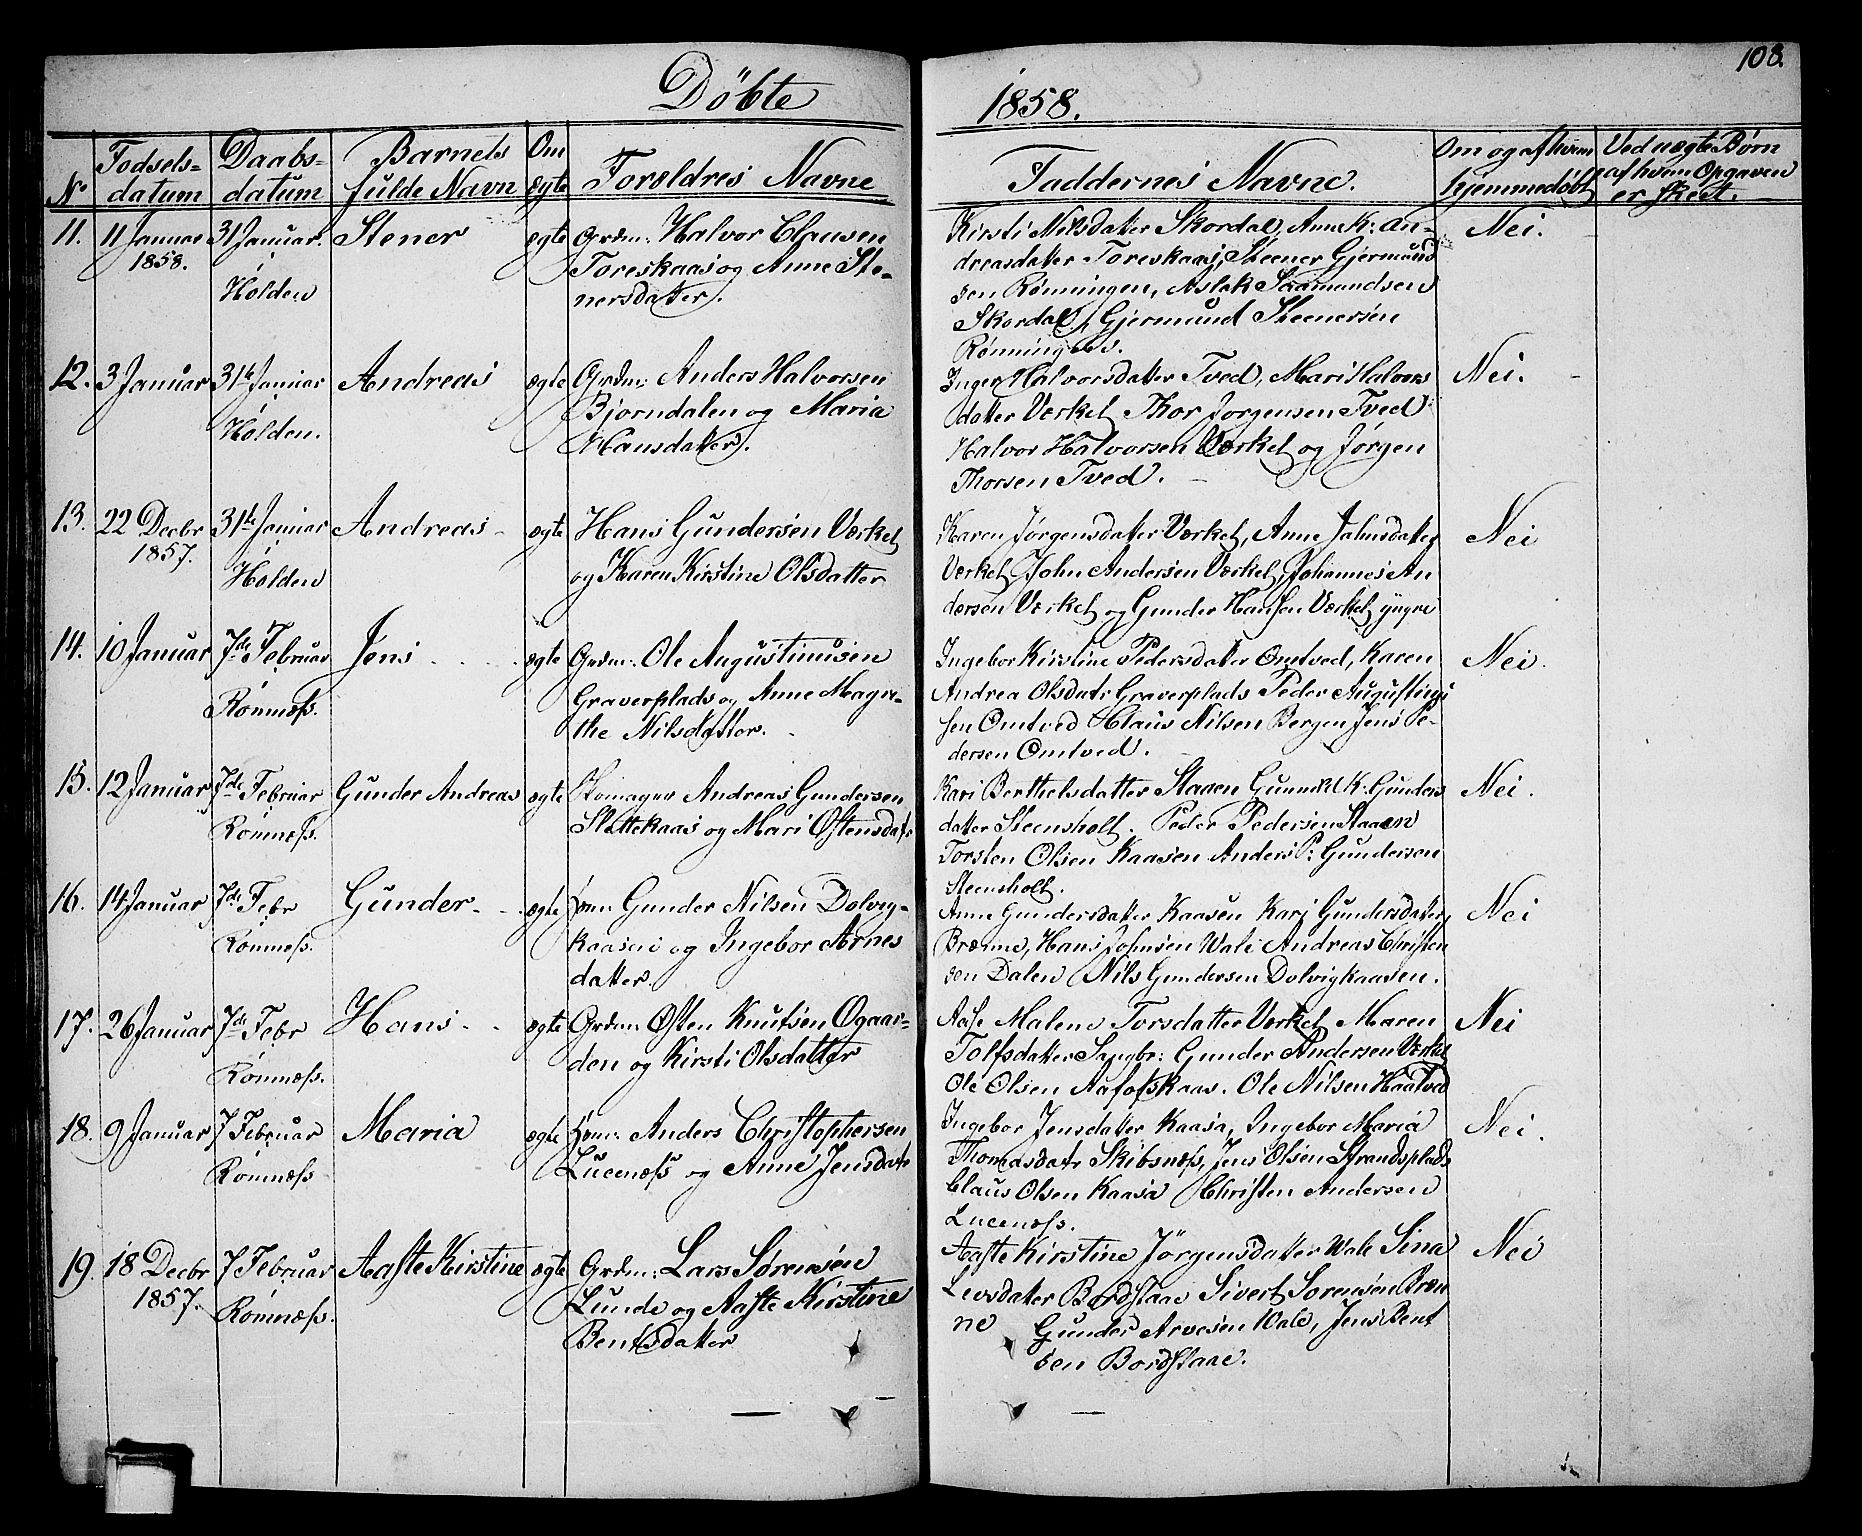 Döbte
1858.
108.
No
Fødsels-
datum
Daabs-
datum
Barnets
fulde Navn
Om
ægte
Forældres Navne
Faddernes Navne.
Om og af hvem
hjemmedøbt
Ved uægte Børn
af hvem Opgaven
er skeet.
11.
11 Januar
1858.
31 Januar.
Holden
Stener
ægte
Grdm: Halvor Clausen
Foreskaas og Anne Ste-
nersdatter.
Kirsti Nilsdatter Skordal, Anne K: An-
dreasdatter Foreskaas, Steener Gjermund
sen Rønningen, Aslak Saamundsen
Skordal, Gjermund Steenersén
Rønningen.
Nei.
12.
3 Januar
31te Januar
Holden.
Andreas
ægte
Grdm: Anders Halvorsen
Bjorndalen og Maria
Hansdatter.
Inger Halvorsdatter Tved, Mari Halvors
datter Værket Thor Jorgensen Tved
Halvor Halvorsen Værket og Jørgen
Thorsen Tved.
Nei.
13.
22 Decbr
1857.
31te Januar
Holden
Andreas
ægte
Hans Gundersen Værket
og Karen Kirstine Olsdatter
Karen Jørgensdatter Værket, Anne Jahnsdatter
Værket John Andersen Værket, Johannes An
dersen Værket og Gunder Hansen Værket yngre
Nei
14.
10 Januar
7de Februar
Romnæss.
Jens
ægte
Grdm: Ole Augustinusen
Graverplads og Anne Magre-
the Nilsdatter.
Ingebor Kirstine Pedersdatter Omtved, Karen
Andrea Olsdatr Graverplads Peder Augustinus
sen Omtved Claus Nilsen Bergen Jens Pe-
dersen Omtved.
Nei.
15.
12 Januar
7de Februar
Romnæss.
Gunder Andreas
ægte
Skomager Andreas Gundersen
Slottekaas og Mari Ostensdatr
Kari Berthelsdatter Staaen Gunnil K: Gunders
datter Steensholt. Peder Pedersen Staaen
Torsten Olsen Kaasen Anders P: Gundersen
Steensholt.
Nei.
16.
14 Januar
7de Febr
Romnæss.
Gunder
ægte
Hmn: Gunder Nilsen Dolvig-
kaasen og Ingebor Arnes
datter.
Anne Gundersdatter Kaasen Kari Gundersdatter
Brænne, Hans Johnsen Wale Andreas Christen
sen Dalen Nils Gundersen Dolvigkaasen.
Nei
17.
26 Januar
7de Febr
Romnæss.
Hans
ægte
Grdm: Østen Knutsen Ogaar-
den og Kirsti Olsdatter
Aase Malene Torsdatter Værket Maren
Tolfsdatter Sangbr: Gunder Andersen Værket
Ole Olsen Aafoskaas. Ole Nilsen Haatved
Nei
18.
9 Januar
7 Februar
Romnæss
Maria
ægte
Hmn: Anders Christophersen
Lucenæss og Anne Jensdatr
Ingebor Jensdatter Kaasa, Ingebor Maria
Thomasdatr Skibsnæss, Jens Olsen Strandsplads
Claus Olsen Kaasa Christen Andersen
Lucenæss.
Nei.
19.
18 Decbr
1857.
7 Februar
Romnæss.
Aaste Kirstine
ægte
Grdm: Lars Sørensen
Lunde og Aaste Kirstine
Bentsdatter
Aaste Kirstine Jörgensdatter Wale Sina
Levsdatter Bordstaae Sivert Sorensen Bræn
ne Gunder Arvesen Wale, Jens Bent
sen Bordstaae.
Nei